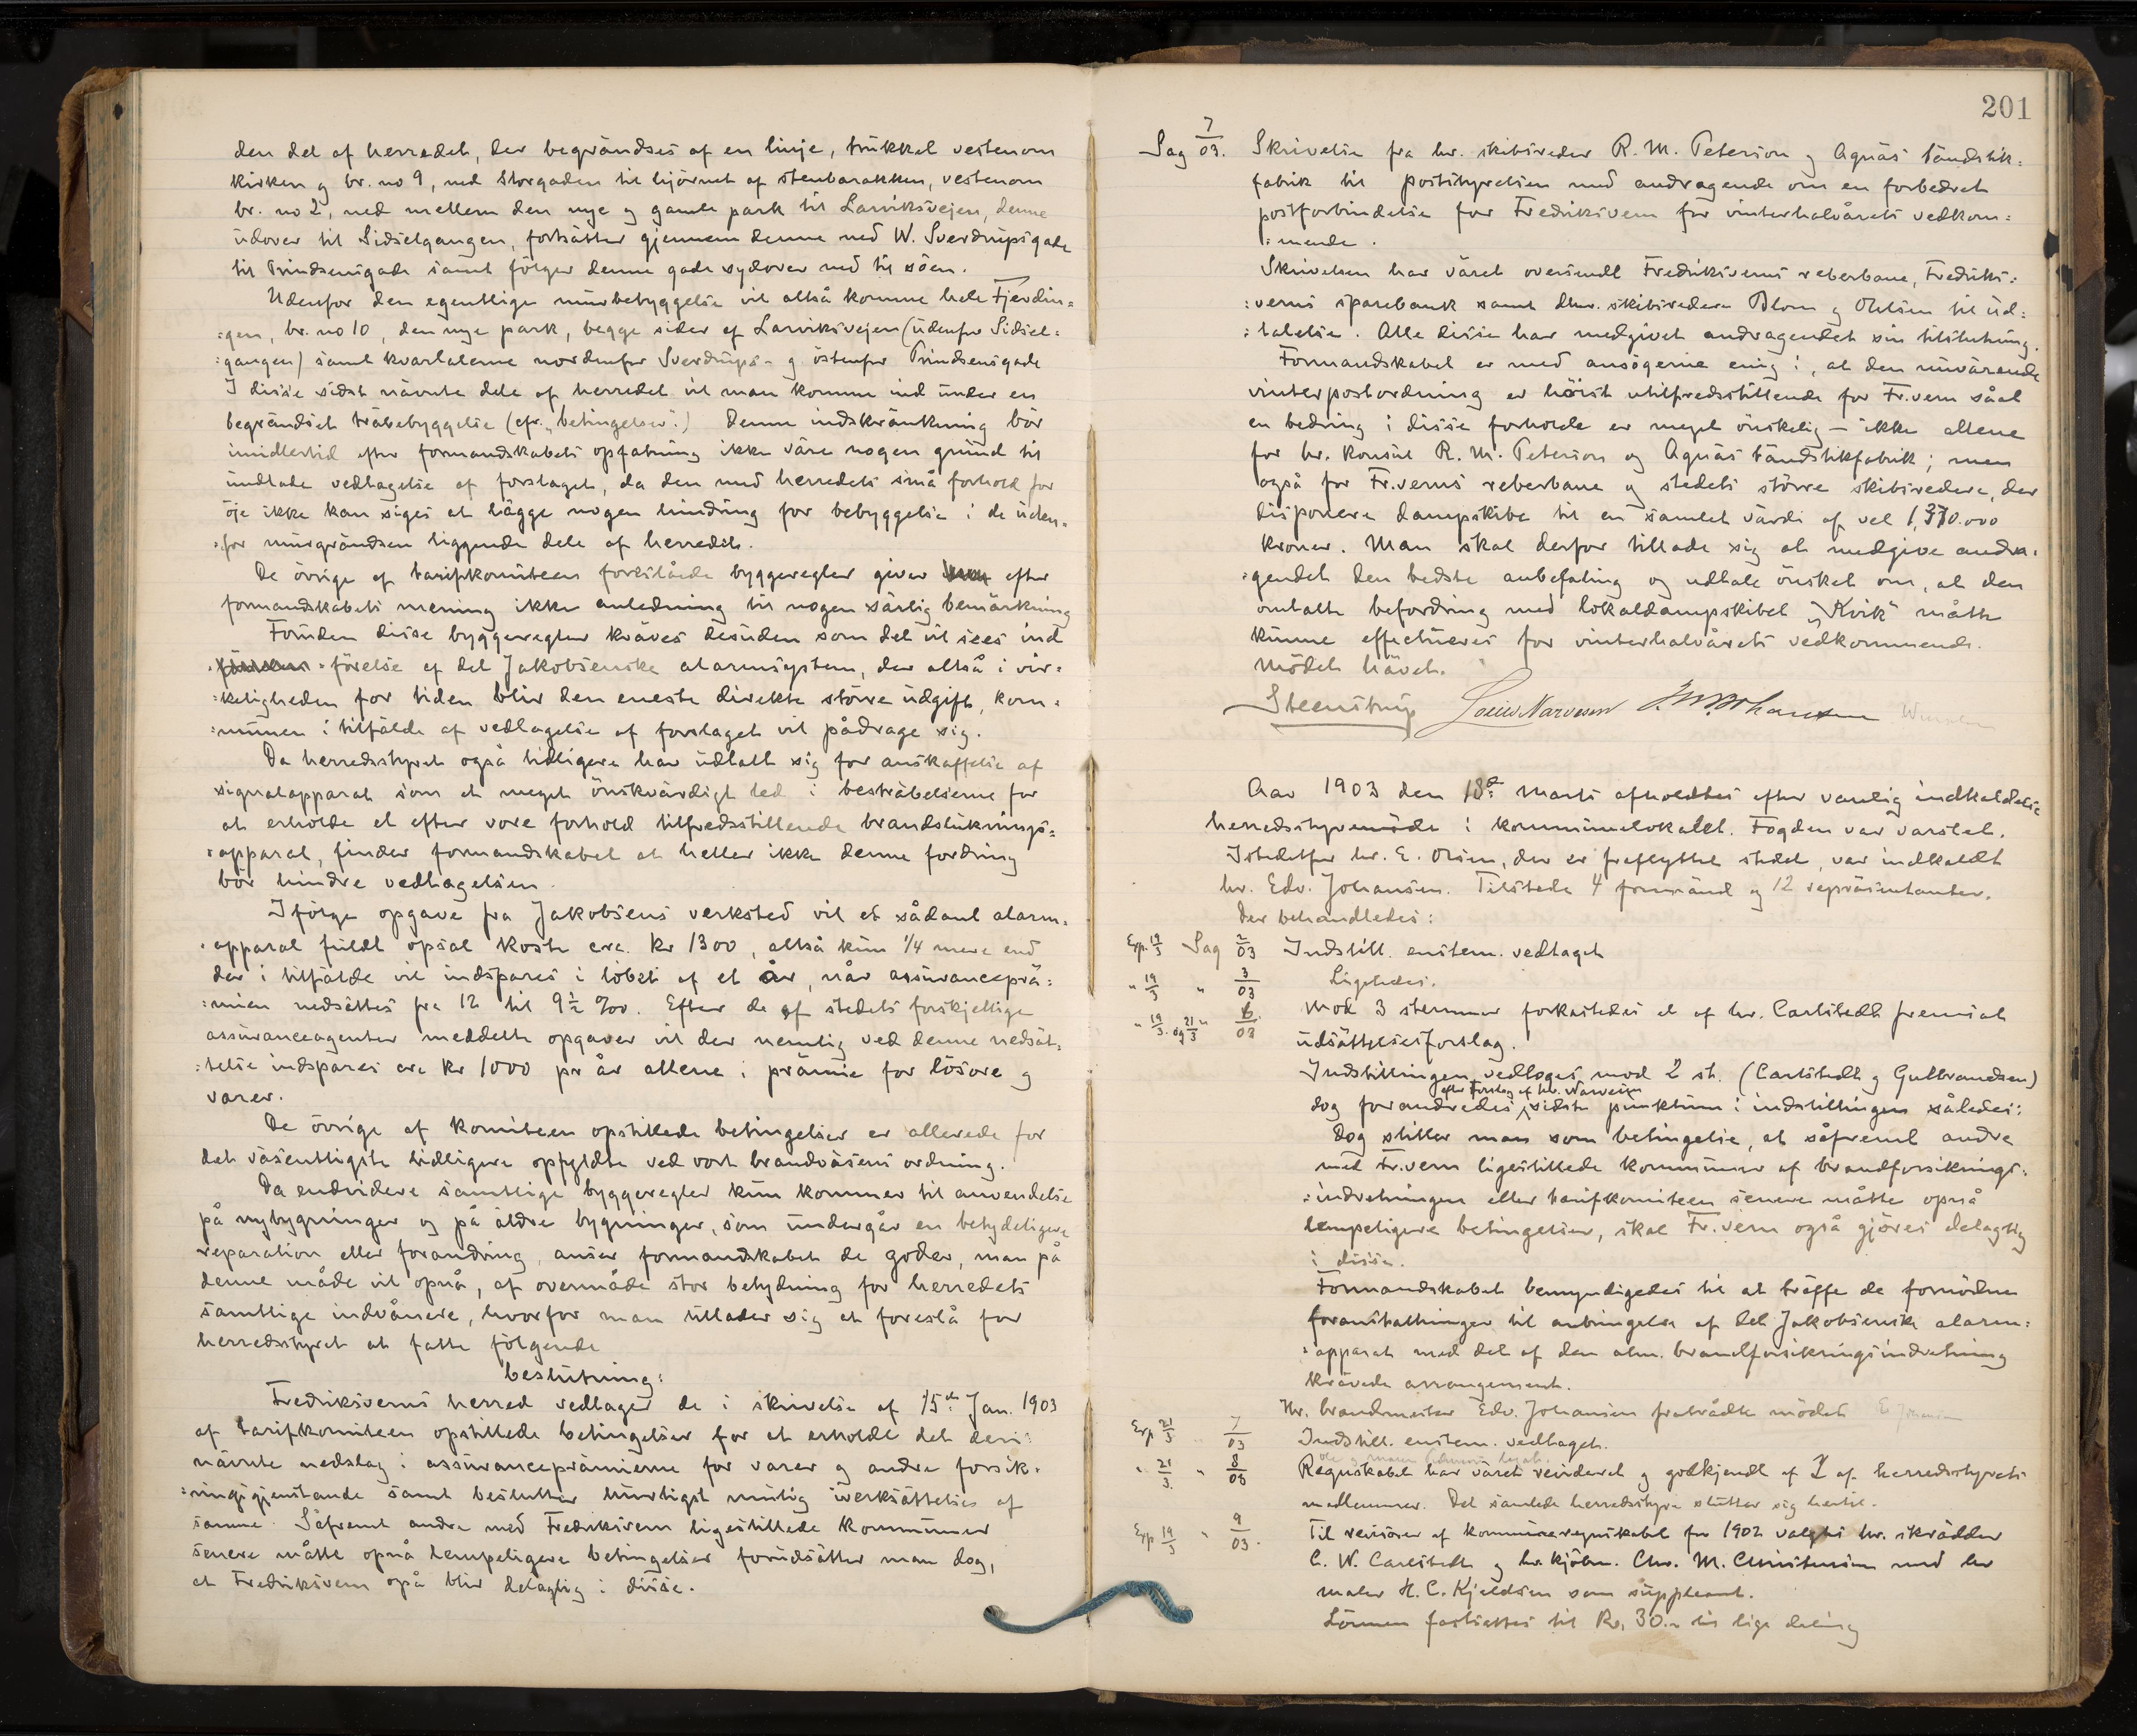 den del af herredet, der begrändses af en linje, trukket vestenom
kirken og br. no 9, ned Storgaden til hjörnet af stenbarakken, vestenom
br. no 2, ned mellem den nye og gamle park til Larviksvejen, denne
udover til Sidselgangen, fortsätter gjennem denne ned W. Sverdrupsgade
til Trindsensgade samt fölger denne gade sydover ned til söen.
Udenfor den egentlige murbebyggelse vil altså komme hele Fjerdin=
=gen, br. no 10, den nye park, begge sider af Larviksvejen (udenfor Sidsel=
=gangen) samt kvartalerne nordenfor Sverdrups- og östenfor Trindsensgade
I disse sidst nävnte dele af herredet vil man komme ind under en
begrändset träbebyggelse (cfr. „betingelser".) Denne indskränkning bör
imidlertid efter formandskabets opfatning ikke väre nogen grund til
undlade vedtagelse af forslaget, da den med herredets små forhold for
öje ikke kan siges at lägge nogen hindring for bebyggelse i de uden=
=for murgrändsen liggende dele af herredet.
De övrige af tarifkomiteen foreslåede byggeregler giver efter
formandskabets mening ikke anledning til nogen särlig bemärkning
Foruden disse byggeregler kräves desuden som det vil sees ind
=förelse af det Jakobsenske alarmsystem, der altså i vir=
=keligheden for tiden blir den eneste direkte större udgift, kom=
=munen i tilfälde af vedtagelse af forslaget vil pådrage sig.
Da herredsstyret også tidligere har udtalt sig for anskaffelse af
signalapparat som et meget önskvärdigt led i besträbelserne for
at erholde et efter vore forhold tilfredsstillende brandsluknings=
=apparat, finder formandskabet at heller ikke denne fordring
bör hindre vedtagelsen.
Ifölge opgave fra Jakobsens verksted vil et sådant alarm=
=apparat fuldt opsat koste cra. kr 1300, altså kun 1/4 mere end
der i tilfälde vil indspares i löbet af et år, når assuranceprä=
=mien nedsättes fra 12 til 9½ ‰. Efter de af stedets forskjellige
assuranceagenter meddelte opgaver vil der nemlig ved denne nedsät=
=telse indspares cra kr 1000 pr år allene i prämie for lösöre og
varer.
De övrige af komiteen opstillede betingelser er allerede for
det väsentligste tidligere opfyldte ved vort brandväsens ordning.
Da endvidere samtlige byggeregler kun kommer til anvendelse
på nybygninger og på äldre bygninger, som undergår en betydeligere
reparation eller forandring, anser formandskabet de goder, man på
denne måde vil opnå, af overmåde stor betydning for herredets
samtlige indvånere, hvorfor man tillader sig at foreslå for
herredsstyret at fatte fölgende
beslutning:
Fredriksverns herred vedtager de i skrivelse af 15de Jan. 1903
af tarifkomiteen opstillede betingelser for at erholde det deri
nävnte nedslag i assuranceprämierne for varer og andre forsik=
=ringsgjenstande samt beslutter hurtigst mulig iverksättelse af
samme. Såfremt andre med Fredriksvern ligestillede kommuner
senere måtte opnå lempeligere betingelser forudsätter man dog,
at Fredriksvern opå blir delagtig i disse.
201
Sag 7/03. Skrivelse fra hr. skibsreder R. M. Peterson og Agnäs tändstik=
fabrik til poststyrelsen med andragende om en forbedret
postforbindelse for Fredriksvern for vinterhalvårets vedkom=
=mende.
Skrivelsen har väret oversendt Fredriksverns reberbane, Fredriks=
=verns sparebank samt dhrr. skibsredere Blom og Ohlsen til ud=
=talelse. Alle disse har medgivet andragendet sin tilslutning.
Formandskabet er med ansögerne enig i, at den nuvärende
vinterpostordning er höist utilfredsstillende for Fr.vern såat
en bedring i disse forholde er meget önskelig – ikke allene
for hr. konsul R. M. Peterson og Agnäs tändstikfabrik; men
også for Fr.verns reberbane og stedets större skibsredere, der
disponere dampskibe til en samlet värdi af vel 1,370.000
kroner. Man skal derfor tillade sig at medgive andra=
=gendet den bedste anbefaling og udtale önsket om, at den
omtalte befordring med lokaldampskibet „Kvik" måtte
kunne effectueres for vinterhalvårets vedkommende.
Mödet hävet.
Steenstrup Louis Narvesen J. M. Johansen
Aar 1903 den 18de marts afholdtes efter vanlig indkaldelse
herredsstyremöde i kommunelokalet. Fogden var varslet.
Istedetfor hr. E. Olsen, der er fraflyttet stedet, var indkaldt
hr. Edv. Johansen. Tilstede 4 formänd og 12 repräsentanter.
Der behandledes:
Exp. 19/3 Sag 2/03 Indstill. enstem. vedtaget
" 19/3 " 3/03 Ligeledes.
" 19/3. og 21/3 " 6/03 Mod 3 stemmer forkastedes et af hr. Carlstedt fremsat
udsättelsesforslag.
Indstillingen vedtoges mod 2 st. (Carlstedt og Gulbrandsen)
efter Forslag af hr. Narvesen
dog forandredes sidste punktum i indstillingen således:
Dog stiller man som betingelse, at såfremt andre
med Fr.vern ligestillede kommuner af brandforsikrings=
=indretningen eller tarifkomiteen senere måtte opnå
lempeligere betingelser, skal Fr.vern også gjöres delagtig
i disse.
Formandskabet bemyndigedes til at träffe de fornödne
foranstaltninger til anbringelse af det Jakobsenske alarm=
=apparat med det af den alm. brandforsikringsindretning
krävede arrangement.
Hr. brandmester Edv. Johansen fratrådte mödet
Exp 21/3 7/03 Indstill. enstem. vedtaget.
" 21/3. " 8/03 Regnskabet har väret revideret og godkjendt af 2 af herredsstyrets
medlemmer. Det samlede herredsstyre slutter sig hertil.
Exp 19/3 " 9/03. Til revisorer af kommuneregnskabet for 1902 valgtes hr. skrädder
C. W. Carlstedt og hr. kjöbm. Chr. M. Christensen med hr
maler H. C. Kjeldsen som suppleant.
Lönnen fastsattes til Kr. 30.- til lige deling